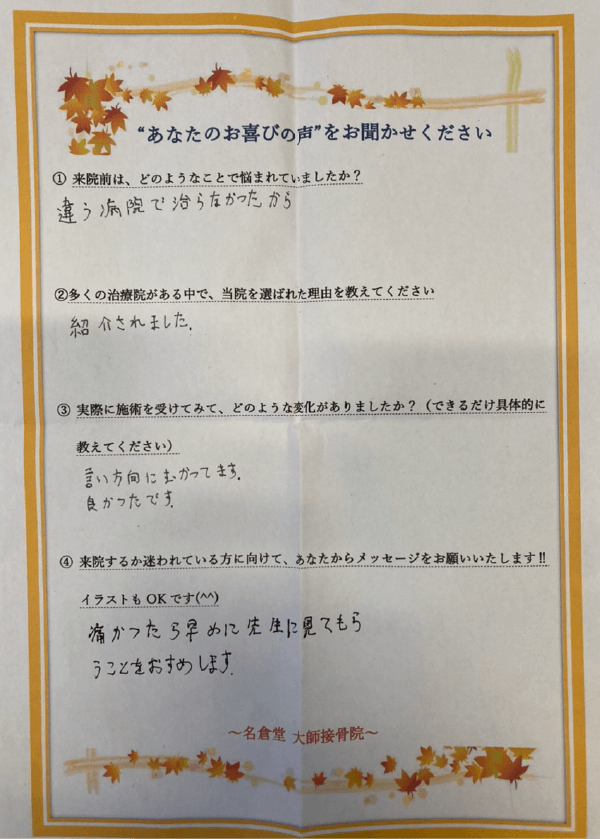 “あなたのお喜びの声”をお聞かせください
① 来院前は、どのようなことで悩まれていましたか？
違う病院で治らなかったから
②多くの治療院がある中で、当院を選ばれた理由を教えてください
紹介されました.
③ 実際に施術を受けてみて、どのような変化がありましたか？（できるだけ具体的に
教えてください）
言い方向にむかってます.
良かったです.
④ 来院するか迷われている方に向けて、あなたからメッセージをお願いいたします!!
イラストもOKです(^^)
痛かったら早めに先生に見てもら
うことをおすすめします.
～名倉堂 大師接骨院～